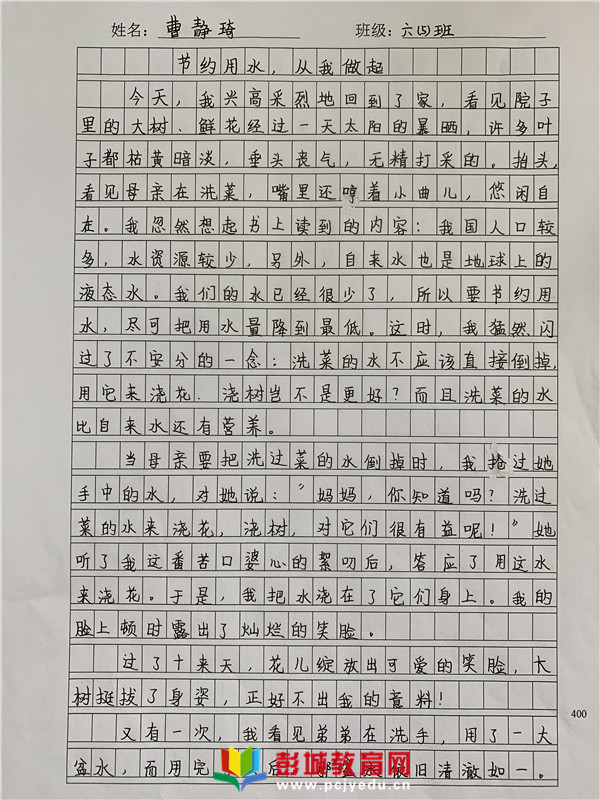 姓名：曹静琦 班级：六（5）班
节约用水，从我做起
今天，我兴高采烈地回到了家，看见院子
里的大树、鲜花经过一天太阳的暴晒，许多叶
子都枯黄暗淡，垂头丧气，无精打采的。抬头，
看见母亲在洗菜，嘴里还哼着小曲儿，悠闲自
在。我忽然想起书上读到的内容：我国人口较
多，水资源较少，另外，自来水也是地球上的
液态水。我们的水已经很少了，所以要节约用
水，尽可把用水量降到最低。这时，我猛然闪
过了不安分的一念：洗菜的水不应该直接倒掉，
用它来浇花．浇树岂不是更好？而且洗菜的水
比自来水还有营养。
当母亲要把洗过菜的水倒掉时，我抢过她
手中的水，对她说：“妈妈，你知道吗？洗过
菜的水来浇花，浇树，对它们很有益呢！”她
听了我这番苦口婆心的絮叨后，答应了用这水
来浇花。于是，我把水浇在了它们身上。我的
脸上顿时露出了灿烂的笑脸。
过了十来天，花儿绽放出可爱的笑脸，大
树挺拔了身姿，正好不出我的意料！
400
又有一次，我看见弟弟在洗手，用了一大
盆水，而用完后，依旧清澈如一。
彭城教育网
www.pcjyedu.cn